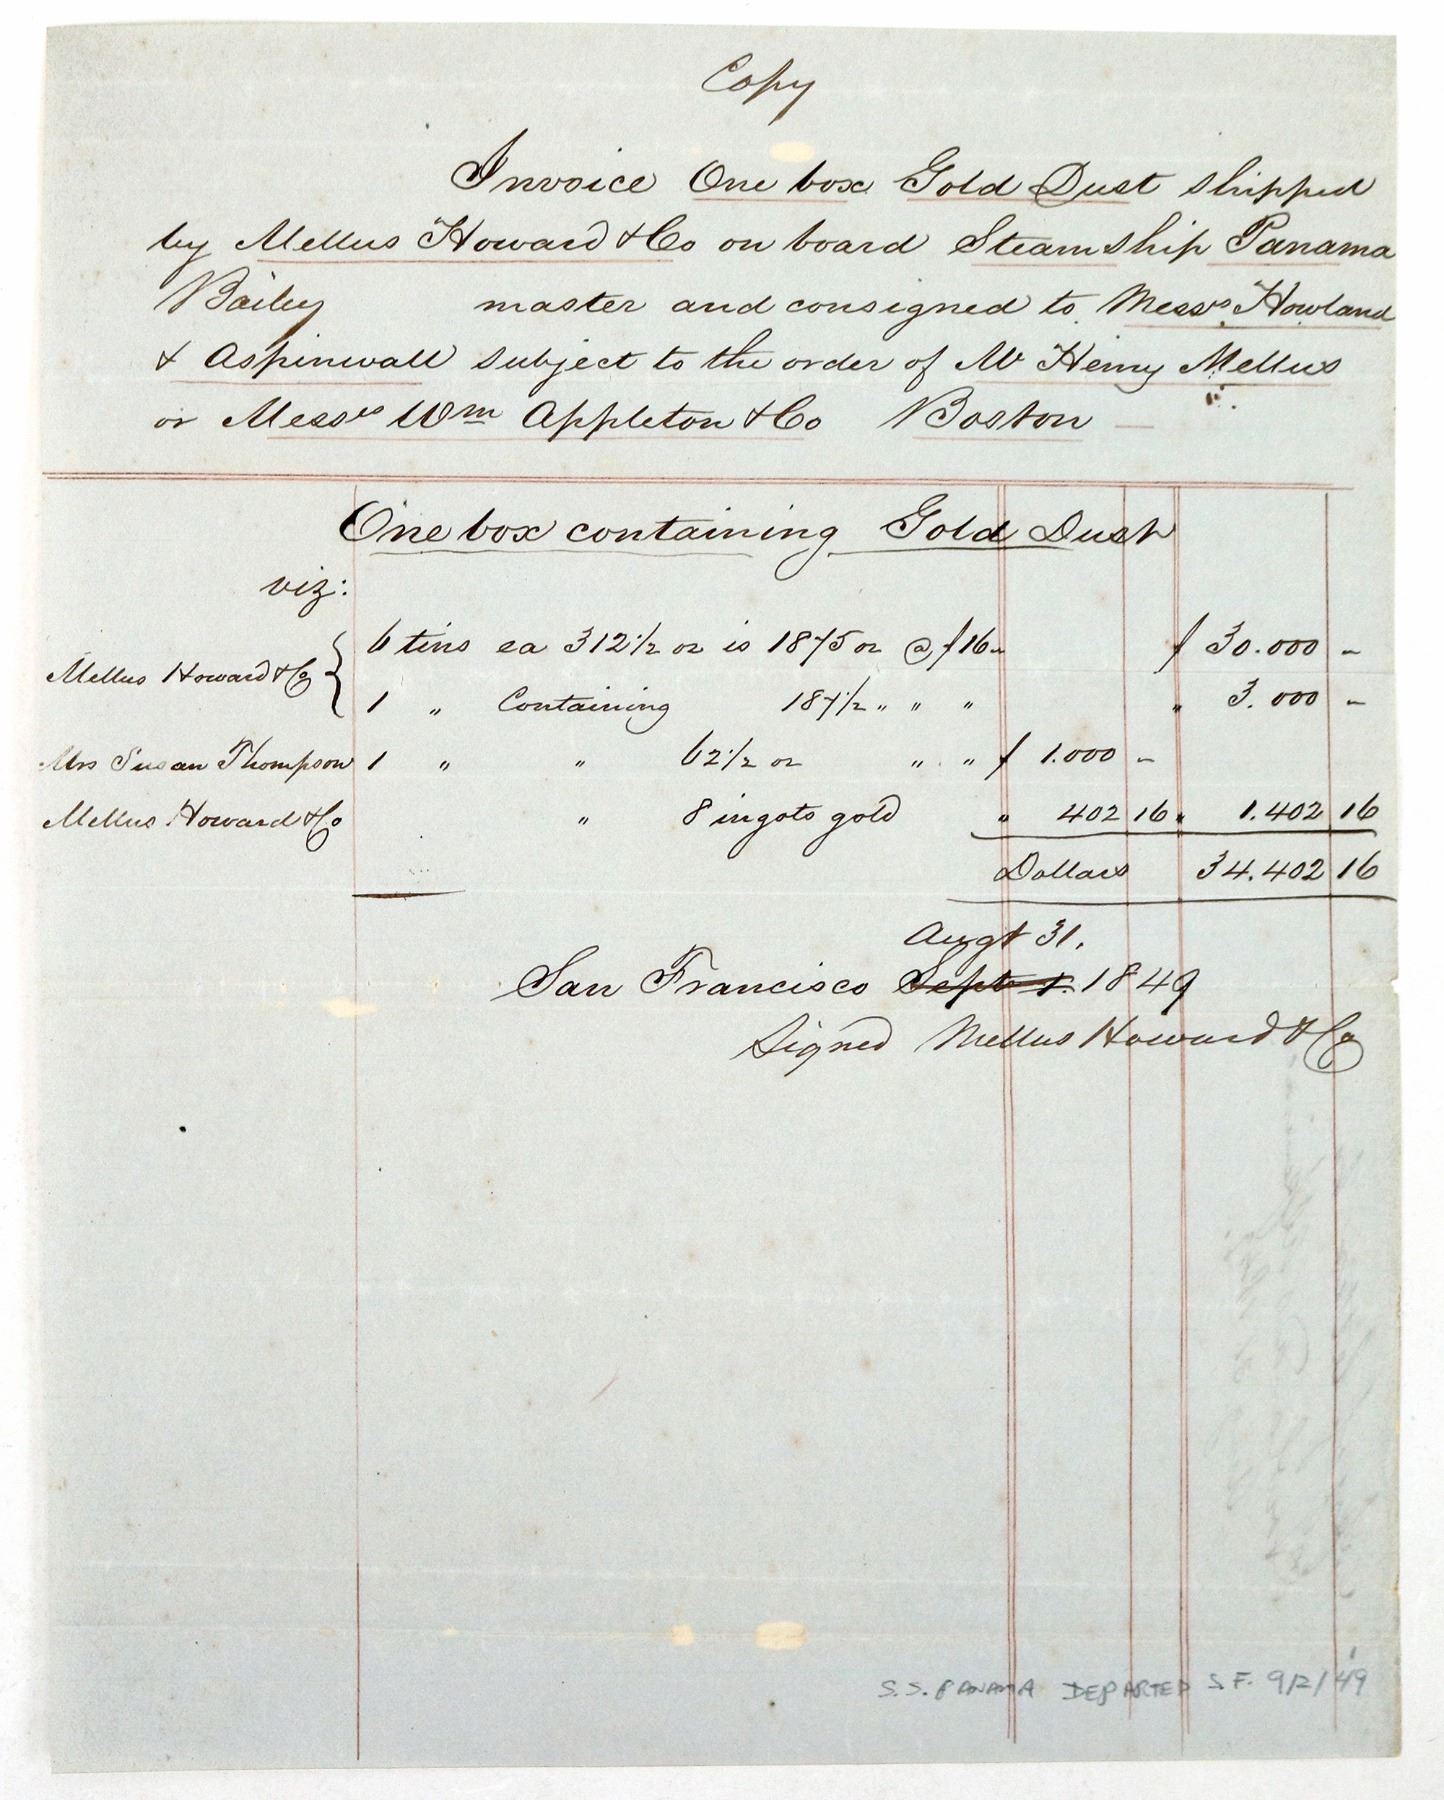 Copy
Invoice One box Gold Dust shipped
by Mellus Howard & Co on board Steam ship Panama
Bailey master and consigned to Messrs Howland
& Aspinwall subject to the order of Mr Henry Mellus
or Messrs Wm Appleton & Co Boston —
One box containing Gold Dust
viz:
Mellus Howard & Co { 6 tins ea 312 1/2 oz is 1875 oz @ $16 - $ 30.000 -
1 " Containing 187 1/2 " " " " 3.000 -
Mrs Susan Thompson 1 " " 62 1/2 oz " " $ 1.000 -
Mellus Howard & Co " 8 ingots gold " 402 16 " 1.402 16
Dollars 34.402 16
Augt 31.
San Francisco Sept 1. 1849
Signed Mellus Howard & Co
S.S. PANAMA DEPARTED S.F. 9/2/49